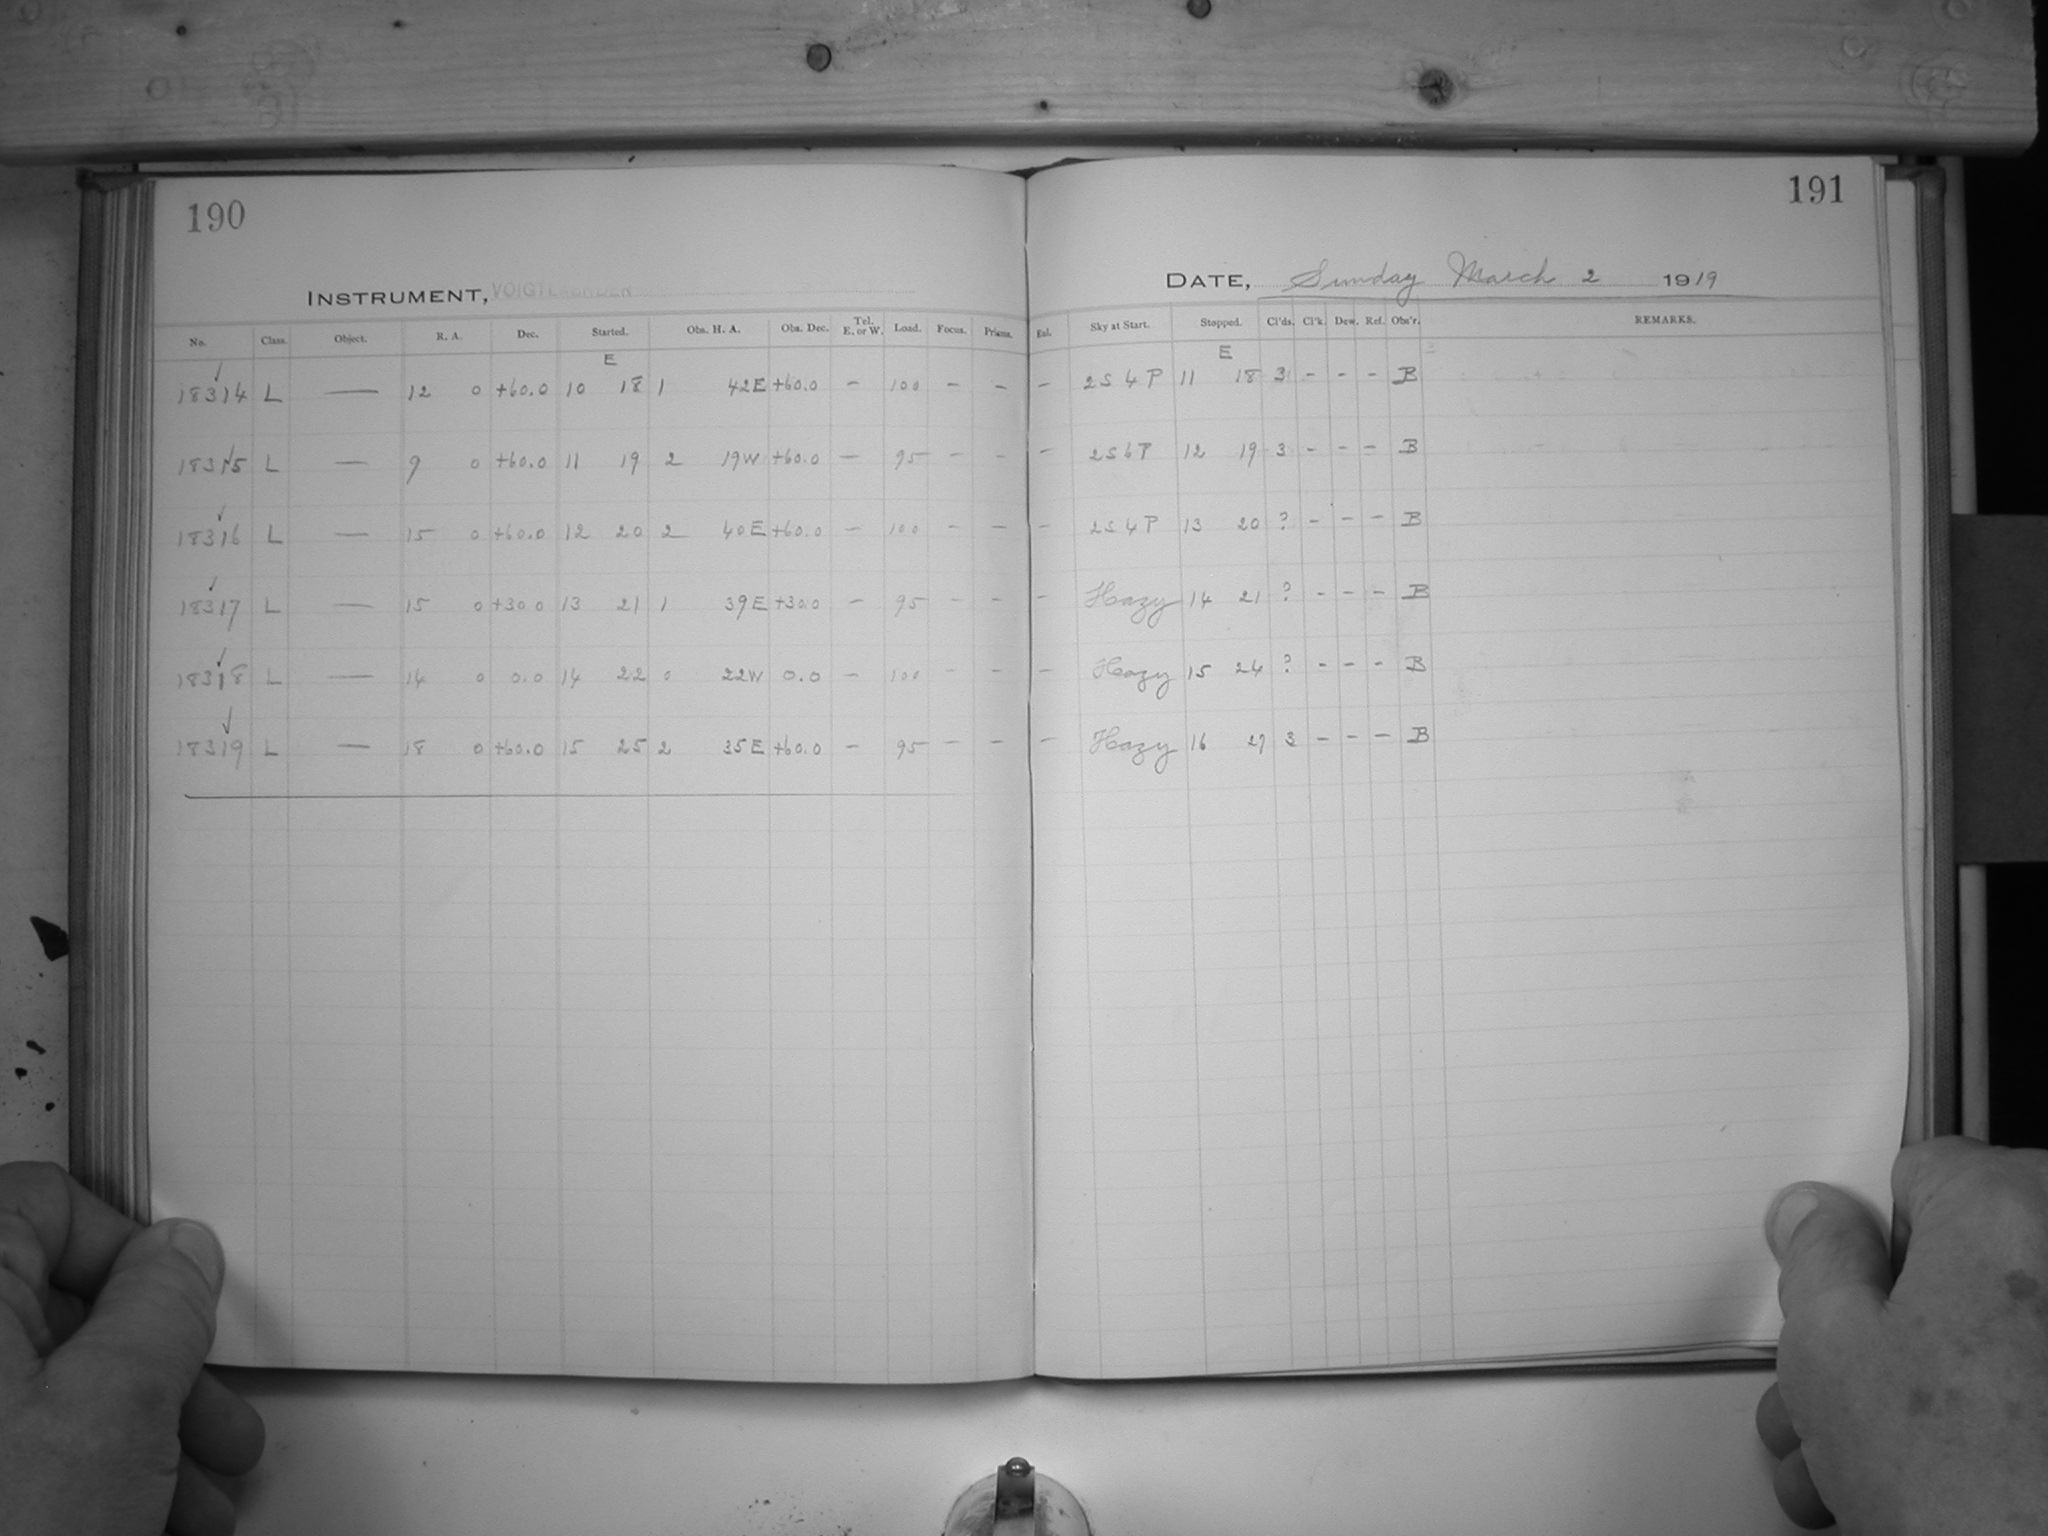 190
INSTRUMENT, VOIGTLAENDER
No. Class. Object. R. A. Dec. Started. Obs. H. A. Obs. Dec. Tel. E. or W. Load. Focus. Prisms.
E
18314 L — 12 0 +60.0 10 18 1 42E +60.0 – 100 – –
18315 L — 9 0 +60.0 11 19 2 19W +60.0 – 95 – –
18316 L — 15 0 +60.0 12 20 2 40E +60.0 – 100 – –
18317 L — 15 0 +30.0 13 21 1 39E +30.0 – 95 – –
18318 L — 14 0 0.0 14 22 0 22W 0.0 – 100 – –
18319 L — 18 0 +60.0 15 25 2 35E +60.0 – 95 – –
191
DATE, Sunday March 2 1919
Sky at Start. Stopped. Cl'ds. Cl'k. Dew. Ref. Obs'r. REMARKS.
E
– 2S 4P 11 18 3 – – – B
– 2S 6P 12 19 3 – – – B
– 2S 4P 13 20 ? – – – B
– Hazy 14 21 ? – – – B
– Hazy 15 24 ? – – – B
– Hazy 16 27 3 – – – B